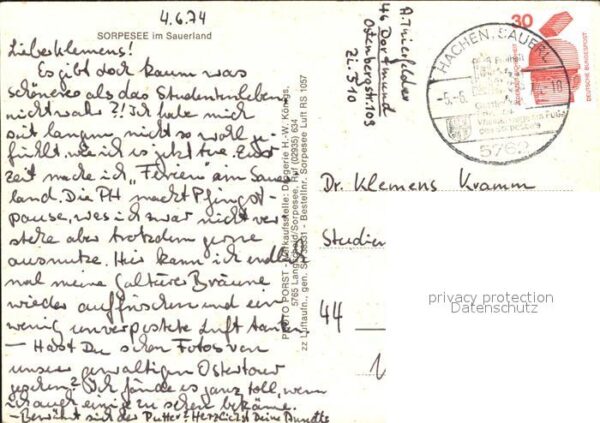 4.6.74
SORPESEE im Sauerland
Lieber Klemens!
Es gibt doch kaum was
schöneres als das Studentenleben,
nicht wahr?! Ich habe mich
seit langem nicht so wohl ge-
fühlt, wie ich es jetzt tue. Zur
Zeit mache ich "Ferien" am Sauer
land. Die PH macht Pfingst-
pause, was ich zwar nicht ver
stehe aber trotzdem gerne
ausnutze. Hier kann ich endlich
mal meine Bräune
wieder auffrischen und ein
wenig unverpestete Luft tanken.
— Hast Du schon Fotos von
unserer gewaltigen Ostertour
gesehen? Ich fände es ganz toll, wenn
ich auch einige zu sehen bekäme.
- Bewährt sich der Putter? Herzlichst Deine Annette
PHOTO PORST Verkaufsstelle: Drogerie H.-W. Königs,
5768 Langscheid/Sorpesee, Ruf (02935) 634
Luftaufn., gen. Bestellnr. Sorpesee Luft RS 1057
A. Thierfelder
46 Dortmund
Ostenbergstr. 103
Zi. 510
HACHEN, SAUERL
-5.-6. -10
5762
30
DEUTSCHE BUNDESPOST
Dr. Klemens Kramm
Studien
44
privacy protection
Datenschutz